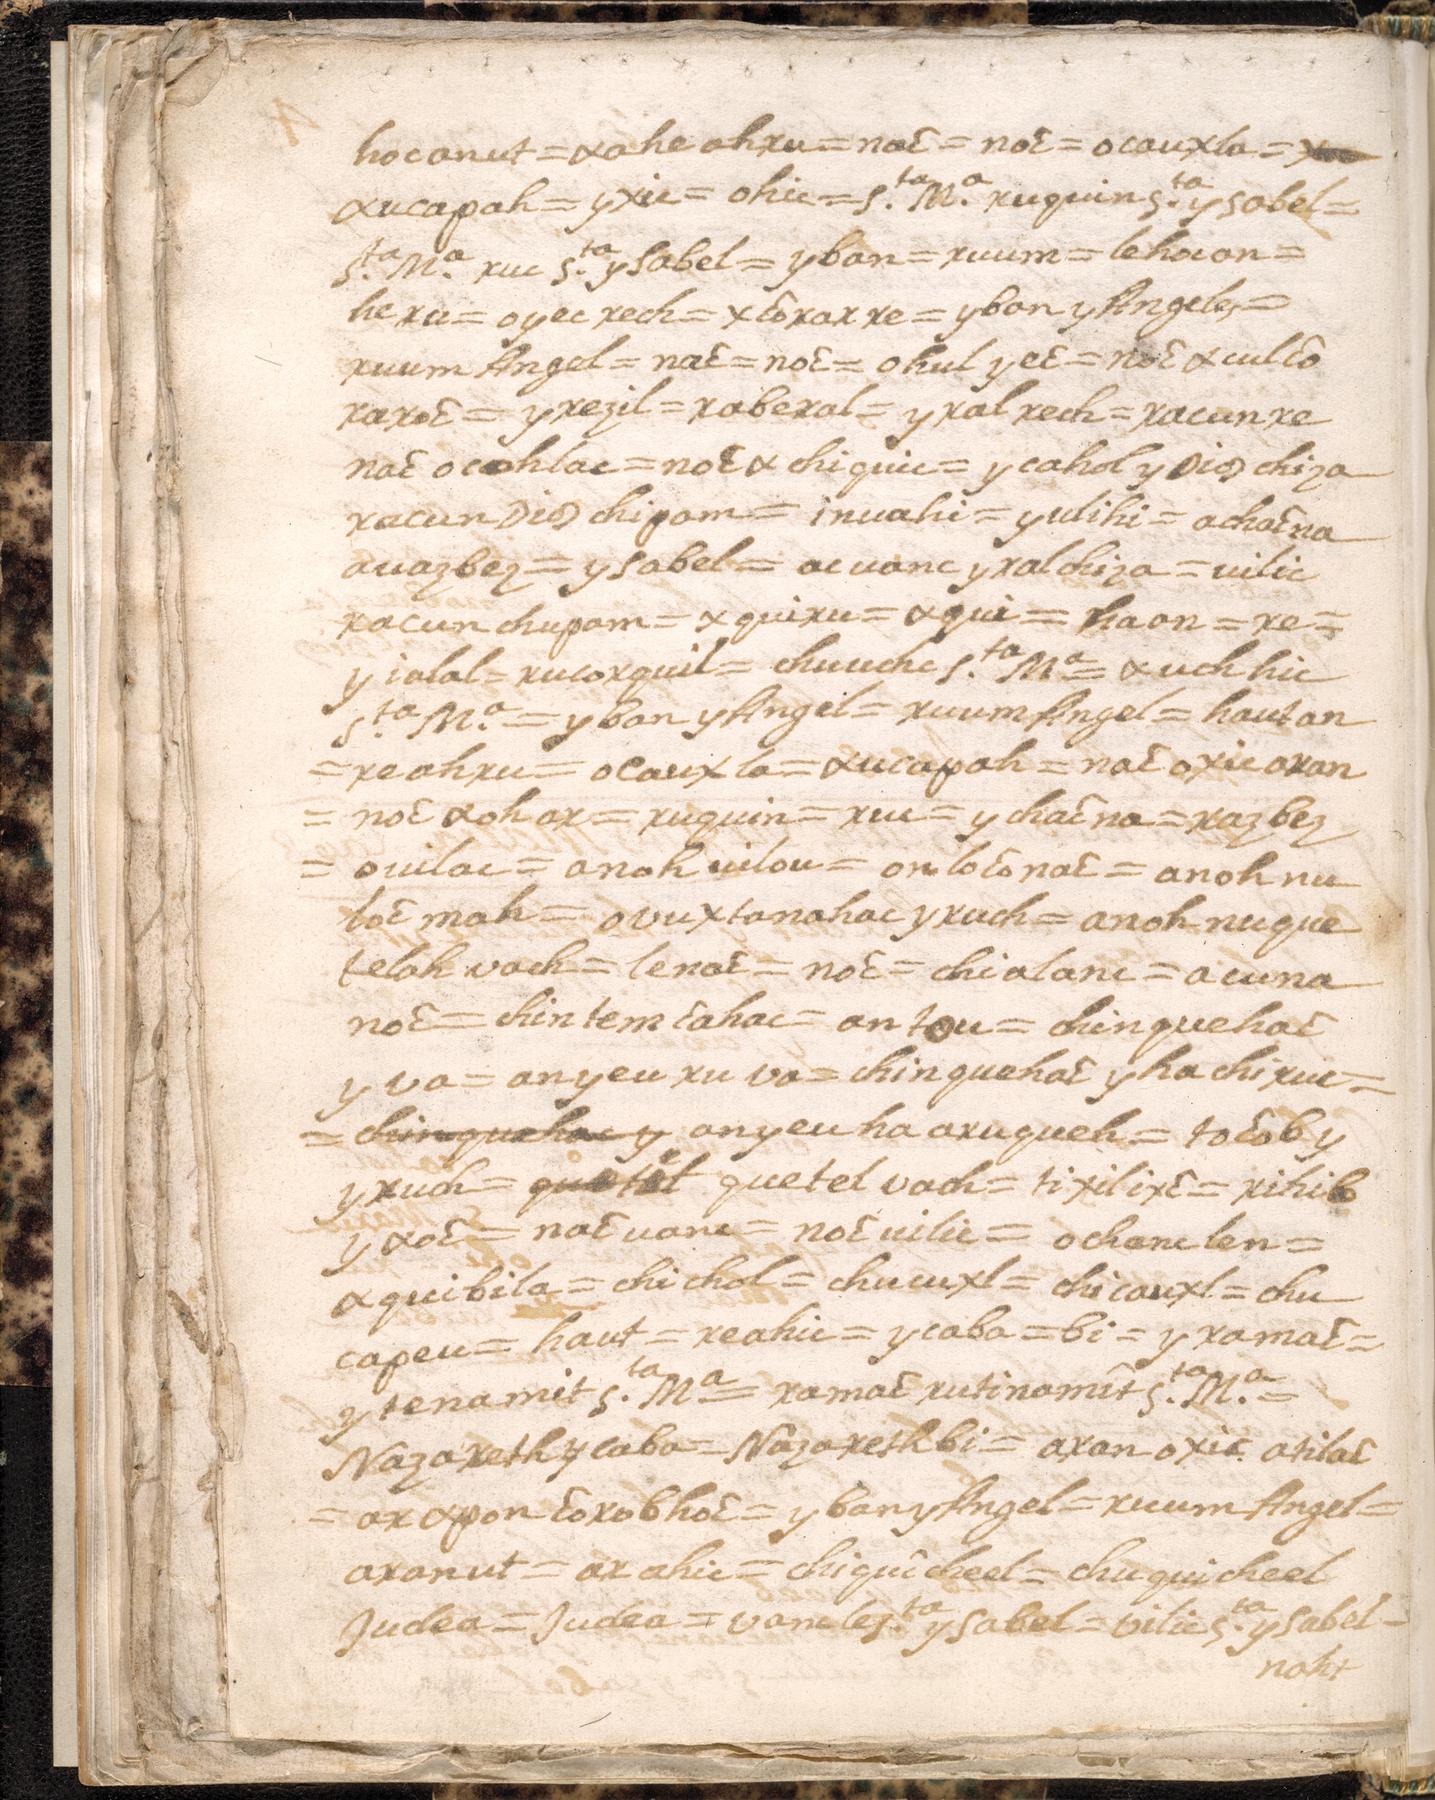 hocanut = xahe ahxu = naꜫ = noꜫ = ocauxla =
xucapah = yxic = ohic = S.ta M.a ruquin S.ta ysabel =
S.ta M.a ruc S.ta ysabel = yban = ruum = lehocan =
heru = oyec rech = xꜫorarre = yban y Angeles =
ruum Angel = naꜫ = noꜫ = ohul yeꜫ = noꜫ xculꜫo
raxoꜫ = yrezil = raberal = yral rech = racunre
naꜫ ocohlac = noꜫ xchiquic = ycahol y Dios chiza
racun Dios chipam = inuahi = yulihi = achaꜫna
auazbez = ysabel = acuanc yralchiza = uilic
racun chupam = xquiru = xqui = haon = re =
y ialal = rucorquil = chuuche S.ta M.a = xuchhic
S.ta M.a = yban y Angel = ruum Angel = hautan
= reahru = ocauxla = xucapah = naꜫ oxic aran
= noꜫ xohar = ruquin = ruc = ychaꜫna = razbez
= ouilac = anah uilou = on loꜫo naꜫ = anoh nu
loꜫ mah = ovuxtanahac yruch = anoh nuque
telah vach = lenaꜫ = noꜫ = chialanc = acuna
noꜫ = chin temꜫahac = an tou = chinquehaꜫ
y va = anyeu ru va = chinquehaꜫ yha chiruc =
= chinquehac y anyeu ha aruqueh = toꜫob y
yruch = quetel quetel vach = tixilixꜫ = rihib
y xoꜫ = naꜫ uanc = noꜫ uilic = ochanclen =
xquibila = chi chol = chucuxl = chicauxl = chu
capeu = haut = reahic = ycaba = bi = y ramaꜫ =
y tenamit S.ta M.a = ramaꜫ rutinamit S.ta M.a =
Nazareth ycaba = Nazareth bi = aran oxic atilaꜫ
= ar xpon ꜫorobhoꜫ = yban y Angel = ruum Angel =
aranut = ar ahic = chiquicheel = chuquicheel
Judea = Judea = vancle S.ta ysabel = vilic S.ta ysabel =
naht